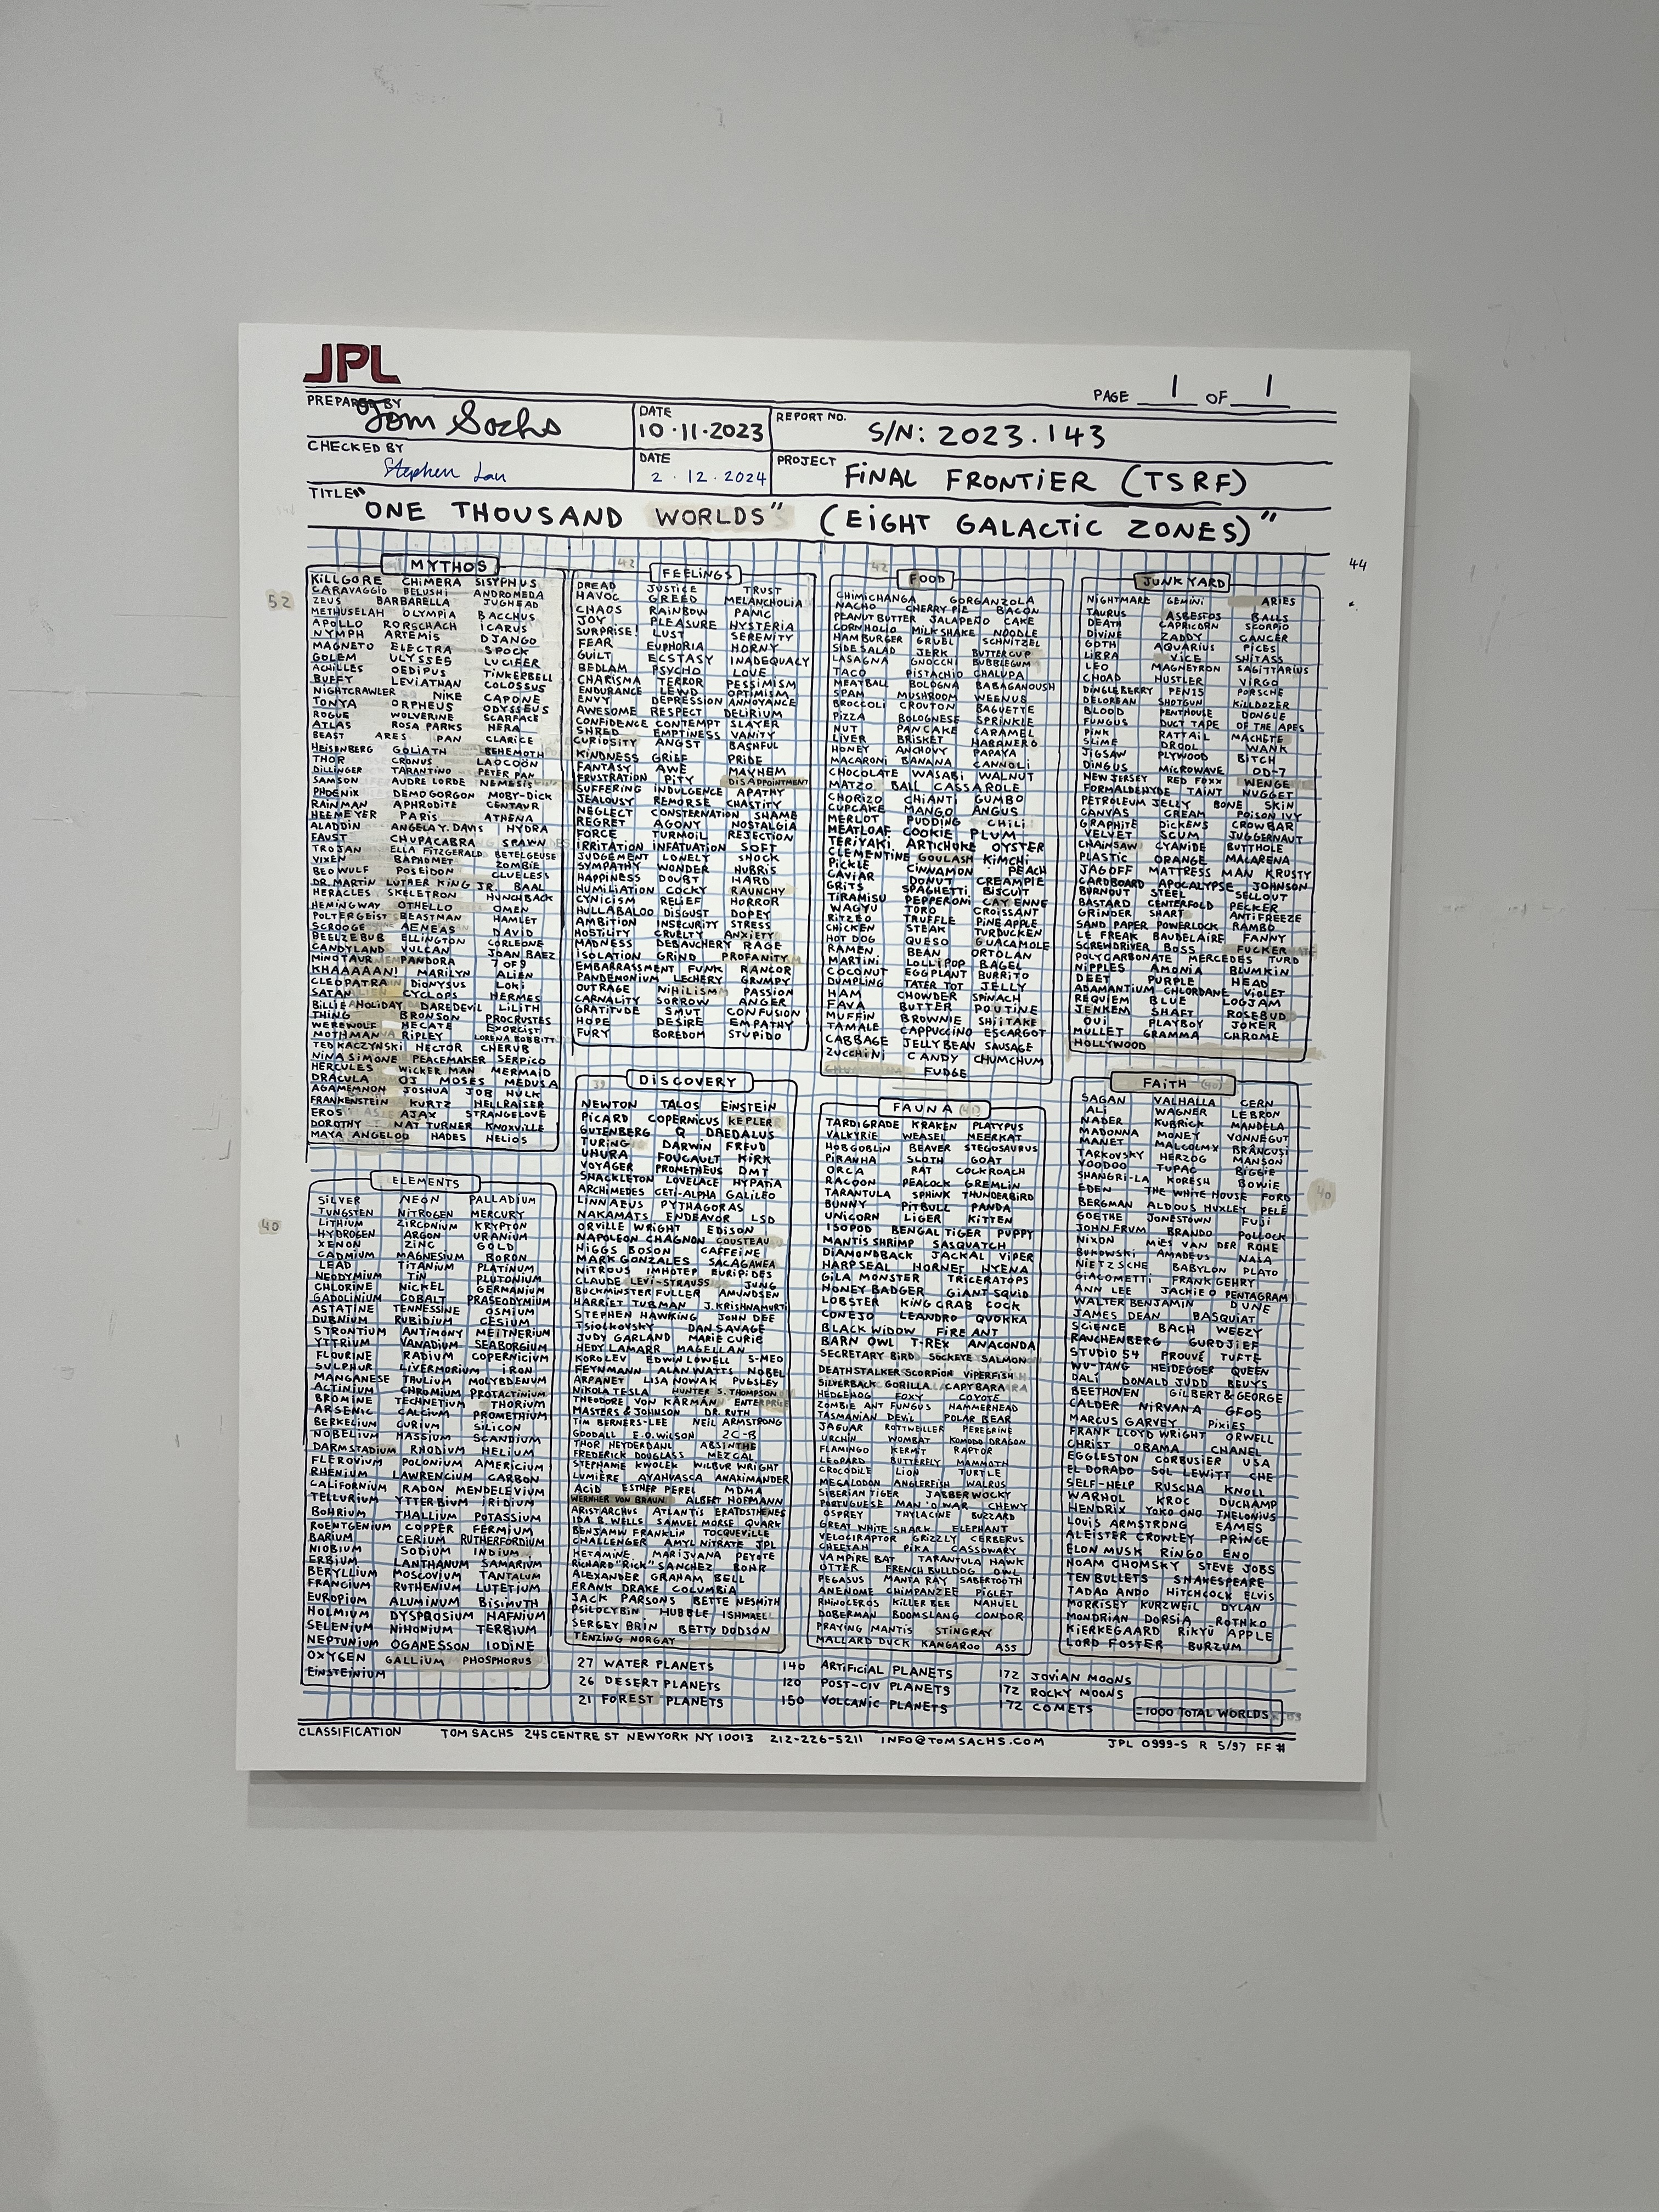 JPL
PAGE 1 OF 1
PREPARED BY Tom Sachs
DATE 10·11·2023
REPORT NO. S/N: 2023.143
CHECKED BY Stephen Lau
DATE 2·12·2024
PROJECT FINAL FRONTIER (TSRF)
TITLE "ONE THOUSAND WORLDS" (EIGHT GALACTIC ZONES)"
44
52
MYTHOS
KILLGORE CHIMERA SISYPHUS
CARAVAGGIO BELUSHI ANDROMEDA
ZEUS BARBARELLA JUGHEAD
METHUSELAH OLYMPIA BACCHUS
APOLLO RORSCHACH ICARUS
NYMPH ARTEMIS DJANGO
MAGNETO ELECTRA SPOCK
GOLEM ULYSSES LUCIFER
ACHILLES OEDIPUS TINKERBELL
BUFFY LEVIATHAN COLOSSUS
NIGHTCRAWLER NIKE CAPONE
TONYA ORPHEUS ODYSSEUS
ROGUE WOLVERINE SCARFACE
ATLAS ROSA PARKS HERA
BEAST ARES PAN CLARICE
HEISENBERG GOLIATH BEHEMOTH
THOR CRONUS LAOCOON
DILLINGER TARANTINO PETER PAN
SAMSON AUDRE LORDE NEMESIS
PHOENIX DEMOGORGON MOBY-DICK
RAINMAN APHRODITE CENTAUR
HEEMEYER PARIS ATHENA
ALADDIN ANGELA Y. DAVIS HYDRA
FAUST CHUPACABRA SPAWN
TROJAN ELLA FITZGERALD BETELGEUSE
VIXEN BAPHOMET ZOMBIE
BEOWULF POSEIDON CLUELESS
DR. MARTIN LUTHER KING JR. BAAL
HERACLES SKELETRON HUNCHBACK
HEMINGWAY OTHELLO OMEN
POLTERGEIST BEASTMAN HAMLET
SCROOGE AENEAS DAVID
BEELZEBUB ELLINGTON CORLEONE
CANDYLAND VULCAN JOAN BAEZ
MINOTAUR PANDORA 7 OF 9
KHAAAAAN! MARILYN ALIEN
CLEOPATRA DIONYSUS LOKI
SATAN CYCLOPS HERMES
BILLIE HOLIDAY DAREDEVIL LILITH
THING BRONSON PROCRUSTES
WEREWOLF HECATE EXORCIST
MOTHMAN RIPLEY LORENA BOBBITT
TED KACZYNSKI HECTOR CHERUB
NINA SIMONE PEACEMAKER SERPICO
HERCULES WICKER MAN MERMAID
DRACULA OJ MOSES MEDUSA
AGAMEMNON JOSHUA JOB HULK
FRANKENSTEIN KURTZ HELLRAISER
EROS AJAX STRANGELOVE
DOROTHY NAT TURNER KNOXVILLE
MAYA ANGELOU HADES HELIOS
42
FEELINGS
DREAD JUSTICE TRUST
HAVOC GREED MELANCHOLIA
CHAOS RAINBOW PANIC
JOY PLEASURE HYSTERIA
SURPRISE! LUST SERENITY
FEAR EUPHORIA HORNY
GUILT ECSTASY INADEQUACY
BEDLAM PSYCHO LOVE
CHARISMA TERROR PESSIMISM
ENDURANCE LEWD OPTIMISM
ENVY DEPRESSION ANNOYANCE
AWESOME RESPECT DELIRIUM
CONFIDENCE CONTEMPT SLAYER
SHRED EMPTINESS VANITY
CURIOSITY ANGST BASHFUL
KINDNESS GRIEF PRIDE
FANTASY AWE MAYHEM
FRUSTRATION PITY DISAPPOINTMENT
SUFFERING INDULGENCE APATHY
JEALOUSY REMORSE CHASTITY
NEGLECT CONSTERNATION SHAME
REGRET AGONY NOSTALGIA
FORCE TURMOIL REJECTION
IRRITATION INFATUATION SOFT
JUDGEMENT LONELY SHOCK
SYMPATHY WONDER HUBRIS
HAPPINESS DOUBT HARD
HUMILIATION COCKY RAUNCHY
CYNICISM RELIEF HORROR
HULLABALOO DISGUST DOPEY
AMBITION INSECURITY STRESS
HOSTILITY CRUELTY ANXIETY
MADNESS DEBAUCHERY RAGE
ISOLATION GRIND PROFANITY
EMBARRASSMENT FUNK RANCOR
PANDEMONIUM LECHERY GRUMPY
OUTRAGE NIHILISM PASSION
CARNALITY SORROW ANGER
GRATITUDE SMUT CONFUSION
HOPE DESIRE EMPATHY
FURY BOREDOM STUPIDO
42
FOOD
CHIMICHANGA GORGANZOLA
NACHO CHERRY PIE BACON
PEANUT BUTTER JALAPEÑO CAKE
CORNHOLIO MILKSHAKE NOODLE
HAMBURGER GRUEL SCHNITZEL
SIDE SALAD JERK BUTTERCUP
LASAGNA GNOCCHI BUBBLEGUM
TACO PISTACHIO CHALUPA
MEATBALL BOLOGNA BABAGANOUSH
SPAM MUSHROOM WEENUS
BROCCOLI CROUTON BAGUETTE
PIZZA BOLOGNESE SPRINKLE
NUT PANCAKE CARAMEL
LIVER BRISKET HABANERO
HONEY ANCHOVY PAPAYA
MACARONI BANANA CANNOLI
CHOCOLATE WASABI WALNUT
MATZO BALL CASSAROLE
CHORIZO CHIANTI GUMBO
CUPCAKE MANGO ANGUS
MERLOT PUDDING CHILI
MEATLOAF COOKIE PLUM
TERIYAKI ARTICHOKE OYSTER
CLEMENTINE GOULASH KIMCHI
PICKLE CINNAMON PEACH
CAVIAR DONUT CREAMPIE
GRITS SPAGHETTI BISCUIT
TIRAMISU PEPPERONI CAYENNE
WAGYU TORO CROISSANT
RITZEO TRUFFLE PINEAPPLE
CHICKEN STEAK TURDUCKEN
HOT DOG QUESO GUACAMOLE
RAMEN BEAN ORTOLAN
MARTINI LOLLIPOP BAGEL
COCONUT EGGPLANT BURRITO
DUMPLING TATER TOT JELLY
HAM CHOWDER SPINACH
FAVA BUTTER POUTINE
MUFFIN BROWNIE SHIITAKE
TAMALE CAPPUCCINO ESCARGOT
CABBAGE JELLYBEAN SAUSAGE
ZUCCHINI CANDY CHUMCHUM
FUDGE
JUNKYARD
NIGHTMARE GEMINI ARIES
TAURUS ASBESTOS BALLS
DEATH CAPRICORN SCORPIO
DIVINE ZADDY CANCER
GOTH AQUARIUS PICES
LIBRA VICE SHITASS
LEO MAGNETRON SAGITTARIUS
CHOAD HUSTLER VIRGO
DINGLEBERRY PEN15 PORSCHE
DELOREAN SHOTGUN KILLDOZER
BLOOD PENTHOUSE DONGLE
FUNGUS DUCT TAPE OF THE APES
PINK RATTAIL MACHETE
SLIME DROOL WANK
JIGSAW PLYWOOD BITCH
DINGUS MICROWAVE OD-7
NEW JERSEY RED FOXX WENGE
FORMALDEHYDE TAINT NUGGET
PETROLEUM JELLY BONE SKIN
CANVAS CREAM POISON IVY
GRAPHITE DICKENS CROWBAR
VELVET SCUM JUGGERNAUT
CHAINSAW CYANIDE BUTTHOLE
PLASTIC ORANGE MACARENA
JAGOFF MATTRESS MAN KRUSTY
CARDBOARD APOCALYPSE JOHNSON
BURNOUT STEEL SELLOUT
BASTARD CENTERFOLD PECKER
GRINDER SHART ANTIFREEZE
SAND PAPER POWERLOCK RAMBO
LE FREAK BAUDELAIRE FANNY
SCREWDRIVER BOSS FUCKER
POLYCARBONATE MERCEDES TURD
NIPPLES AMONIA BLUMKIN
DEET PURPLE HEAD
ADAMANTIUM CHLORDANE VIOLET
REQUIEM BLUE LOGJAM
JENKEM SHAFT ROSEBUD
OUI PLAYBOY JOKER
MULLET GRAMMA CHROME
HOLLYWOOD
40
ELEMENTS
SILVER NEON PALLADIUM
TUNGSTEN NITROGEN MERCURY
LITHIUM ZIRCONIUM KRYPTON
HYDROGEN ARGON URANIUM
XENON ZINC GOLD
CADMIUM MAGNESIUM BORON
LEAD TITANIUM PLATINUM
NEODYMIUM TIN PLUTONIUM
CHLORINE NICKEL GERMANIUM
GADOLINIUM COBALT PRASEODYMIUM
ASTATINE TENNESSINE OSMIUM
DUBNIUM RUBIDIUM CESIUM
STRONTIUM ANTIMONY MEITNERIUM
YTTRIUM VANADIUM SEABORGIUM
FLOURINE RADIUM COPERNICIUM
SULPHUR LIVERMORIUM IRON
MANGANESE THULIUM MOLYBDENUM
ACTINIUM CHROMIUM PROTACTINIUM
BROMINE TECHNETIUM THORIUM
ARSENIC CALCIUM PROMETHIUM
BERKELIUM CURIUM SILICON
NOBELIUM HASSIUM SCANDIUM
DARMSTADIUM RHODIUM HELIUM
FLEROVIUM POLONIUM AMERICIUM
RHENIUM LAWRENCIUM CARBON
CALIFORNIUM RADON MENDELEVIUM
TELLURIUM YTTERBIUM IRIDIUM
BOHRIUM THALLIUM POTASSIUM
ROENTGENIUM COPPER FERMIUM
BARIUM CERIUM RUTHERFORDIUM
NIOBIUM SODIUM INDIUM
ERBIUM LANTHANUM SAMARIUM
BERYLLIUM MOSCOVIUM TANTALUM
FRANCIUM RUTHENIUM LUTETIUM
EUROPIUM ALUMINUM BISIMUTH
HOLMIUM DYSPROSIUM HAFNIUM
SELENIUM NIHONIUM TERBIUM
NEPTUNIUM OGANESSON IODINE
OXYGEN GALLIUM PHOSPHORUS
EINSTEINIUM
39
DISCOVERY
NEWTON TALOS EINSTEIN
PICARD COPERNICUS KEPLER
GUTENBERG Q DAEDALUS
TURING DARWIN FREUD
UHURA FOUCAULT KIRK
VOYAGER PROMETHEUS DMT
SHACKLETON LOVELACE HYPATIA
ARCHIMEDES CETI-ALPHA GALILEO
LINNAEUS PYTHAGORAS
NAKAMATS ENDEAVOR LSD
ORVILLE WRIGHT EDISON
NAPOLEON CHAGNON COUSTEAU
HIGGS BOSON CAFFEINE
MARK GONZALES SACAGAWEA
NITROUS IMHOTEP EURIPIDES
CLAUDE LEVI-STRAUSS JUNG
BUCKMINSTER FULLER AMUNDSEN
HARRIET TUBMAN J. KRISHNAMURTI
STEPHEN HAWKING JOHN DEE
TSIOLKOVSKY DAN SAVAGE
JUDY GARLAND MARIE CURIE
HEDY LAMARR MAGELLAN
KOROLEV EDWIN LOWELL 5-MEO
FEYNMANN ALAN WATTS NOBEL
ARPANET LISA NOWAK PUGSLEY
NIKOLA TESLA HUNTER S. THOMPSON
THEODORE VON KÁRMÁN ENTERPRISE
MASTERS & JOHNSON DR. RUTH
TIM BERNERS-LEE NEIL ARMSTRONG
GOODALL E.O. WILSON 2C-B
THOR HEYDERDAHL ABSINTHE
FREDERICK DOUGLASS MEZCAL
STEPHANIE KWOLEK WILBUR WRIGHT
LUMIÈRE AYAHUASCA ANAXIMANDER
ACID ESTHER PEREL MDMA
WERNHER VON BRAUN ALBERT HOFMANN
ARISTARCHUS ATLANTIS ERATOSTHENES
IDA B. WELLS SAMUEL MORSE QUARK
BENJAMIN FRANKLIN TOCQUEVILLE
CHALLENGER AMYL NITRATE JPL
KETAMINE MARIJUANA PEYOTE
RICHARD "RICK" SANCHEZ BOHR
ALEXANDER GRAHAM BELL
FRANK DRAKE COLUMBIA
JACK PARSONS BETTE NESMITH
PSILOCYBIN HUBBLE ISHMAEL
SERGEY BRIN BETTY DODSON
TENZING NORGAY
FAUNA (41)
TARDIGRADE KRAKEN PLATYPUS
VALKYRIE WEASEL MEERKAT
HOBGOBLIN BEAVER STEGOSAURUS
PIRANHA SLOTH GOAT
ORCA RAT COCKROACH
RACOON PEACOCK GREMLIN
TARANTULA SPHINX THUNDERBIRD
BUNNY PITBULL PANDA
UNICORN LIGER KITTEN
ISOPOD BENGAL TIGER PUPPY
MANTIS SHRIMP SASQUATCH
DIAMONDBACK JACKAL VIPER
HARPSEAL HORNET HYENA
GILA MONSTER TRICERATOPS
HONEY BADGER GIANT SQUID
LOBSTER KING CRAB COCK
CONEJO LEANDRO QUOKKA
BLACK WIDOW FIRE ANT
BARN OWL T-REX ANACONDA
SECRETARY BIRD SOCKEYE SALMON
DEATHSTALKER SCORPION VIPERFISH
SILVERBACK GORILLA CAPYBARA
HEDGEHOG FOXY COYOTE
ZOMBIE ANT FUNGUS HAMMERHEAD
TASMANIAN DEVIL POLAR BEAR
JAGUAR ROTTWEILER PEREGRINE
URCHIN WOMBAT KOMODO DRAGON
FLAMINGO KERMIT RAPTOR
LEOPARD BUTTERFLY MAMMOTH
CROCODILE LION TURTLE
MEGALODON ANGLERFISH WALRUS
SIBERIAN TIGER JABBERWOCKY
PORTUGUESE MAN 'O WAR CHEWY
OSPREY THYLACINE BUZZARD
GREAT WHITE SHARK ELEPHANT
VELOCIRAPTOR GRIZZLY CERBERUS
CHEETAH PIKA CASSOWARY
VAMPIRE BAT TARANTULA HAWK
OTTER FRENCH BULLDOG OWL
PEGASUS MANTA RAY SABERTOOTH
ANENOME CHIMPANZEE PIGLET
RHINOCEROS KILLER BEE NAHUEL
DOBERMAN BOOMSLANG CONDOR
PRAYING MANTIS STINGRAY
MALLARD DUCK KANGAROO ASS
FAITH (40)
SAGAN VALHALLA CERN
ALI WAGNER LEBRON
NADER KUBRICK MANDELA
MADONNA MONEY VONNEGUT
MANET MALCOLM X BRÂNCUSI
TARKOVSKY HERZOG MANSON
VOODOO TUPAC BIGGIE
SHANGRI-LA KORESH BOWIE
EDEN THE WHITE HOUSE FORD
BERGMAN ALDOUS HUXLEY PELÉ
GOETHE JONESTOWN FUJI
JOHN FRUM BRANDO POLLOCK
NIXON MIES VAN DER ROHE
BUKOWSKI AMADEUS NALA
NIETZSCHE BABYLON PLATO
GIACOMETTI FRANK GEHRY
ANN LEE JACHIE O PENTAGRAM
WALTER BENJAMIN DUNE
JAMES DEAN BASQUIAT
SCIENCE BACH WEEZY
RAUCHENBERG GURDJIEF
STUDIO 54 PROUVÉ TUFTE
WU-TANG HEIDEGGER QUEEN
DALÍ DONALD JUDD BEUYS
BEETHOVEN GILBERT & GEORGE
CALDER NIRVANA GFOS
MARCUS GARVEY PIXIES
FRANK LLOYD WRIGHT ORWELL
CHRIST OBAMA CHANEL
EGGLESTON CORBUSIER USA
EL DORADO SOL LEWITT CHE
SELF-HELP RUSCHA KNOLL
WARHOL KROC DUCHAMP
HENDRIX YOKO ONO THELONIUS
LOUIS ARMSTRONG EAMES
ALEISTER CROWLEY PRINCE
ELON MUSK RINGO ENO
NOAM CHOMSKY STEVE JOBS
TEN BULLETS SHAKESPEARE
TADAO ANDO HITCHCOCK ELVIS
MORRISEY KURZWEIL DYLAN
MONDRIAN DORSIA ROTHKO
KIERKEGAARD RIKYU APPLE
LORD FOSTER BURZUM
40
27 WATER PLANETS 140 ARTIFICIAL PLANETS 172 JOVIAN MOONS
26 DESERT PLANETS 120 POST-CIV PLANETS 172 ROCKY MOONS
21 FOREST PLANETS 150 VOLCANIC PLANETS 172 COMETS
=1000 TOTAL WORLDS
CLASSIFICATION TOM SACHS 245 CENTRE ST NEW YORK NY 10013 212-226-5211 INFO@TOMSACHS.COM JPL 0999-S R 5/97 FF#